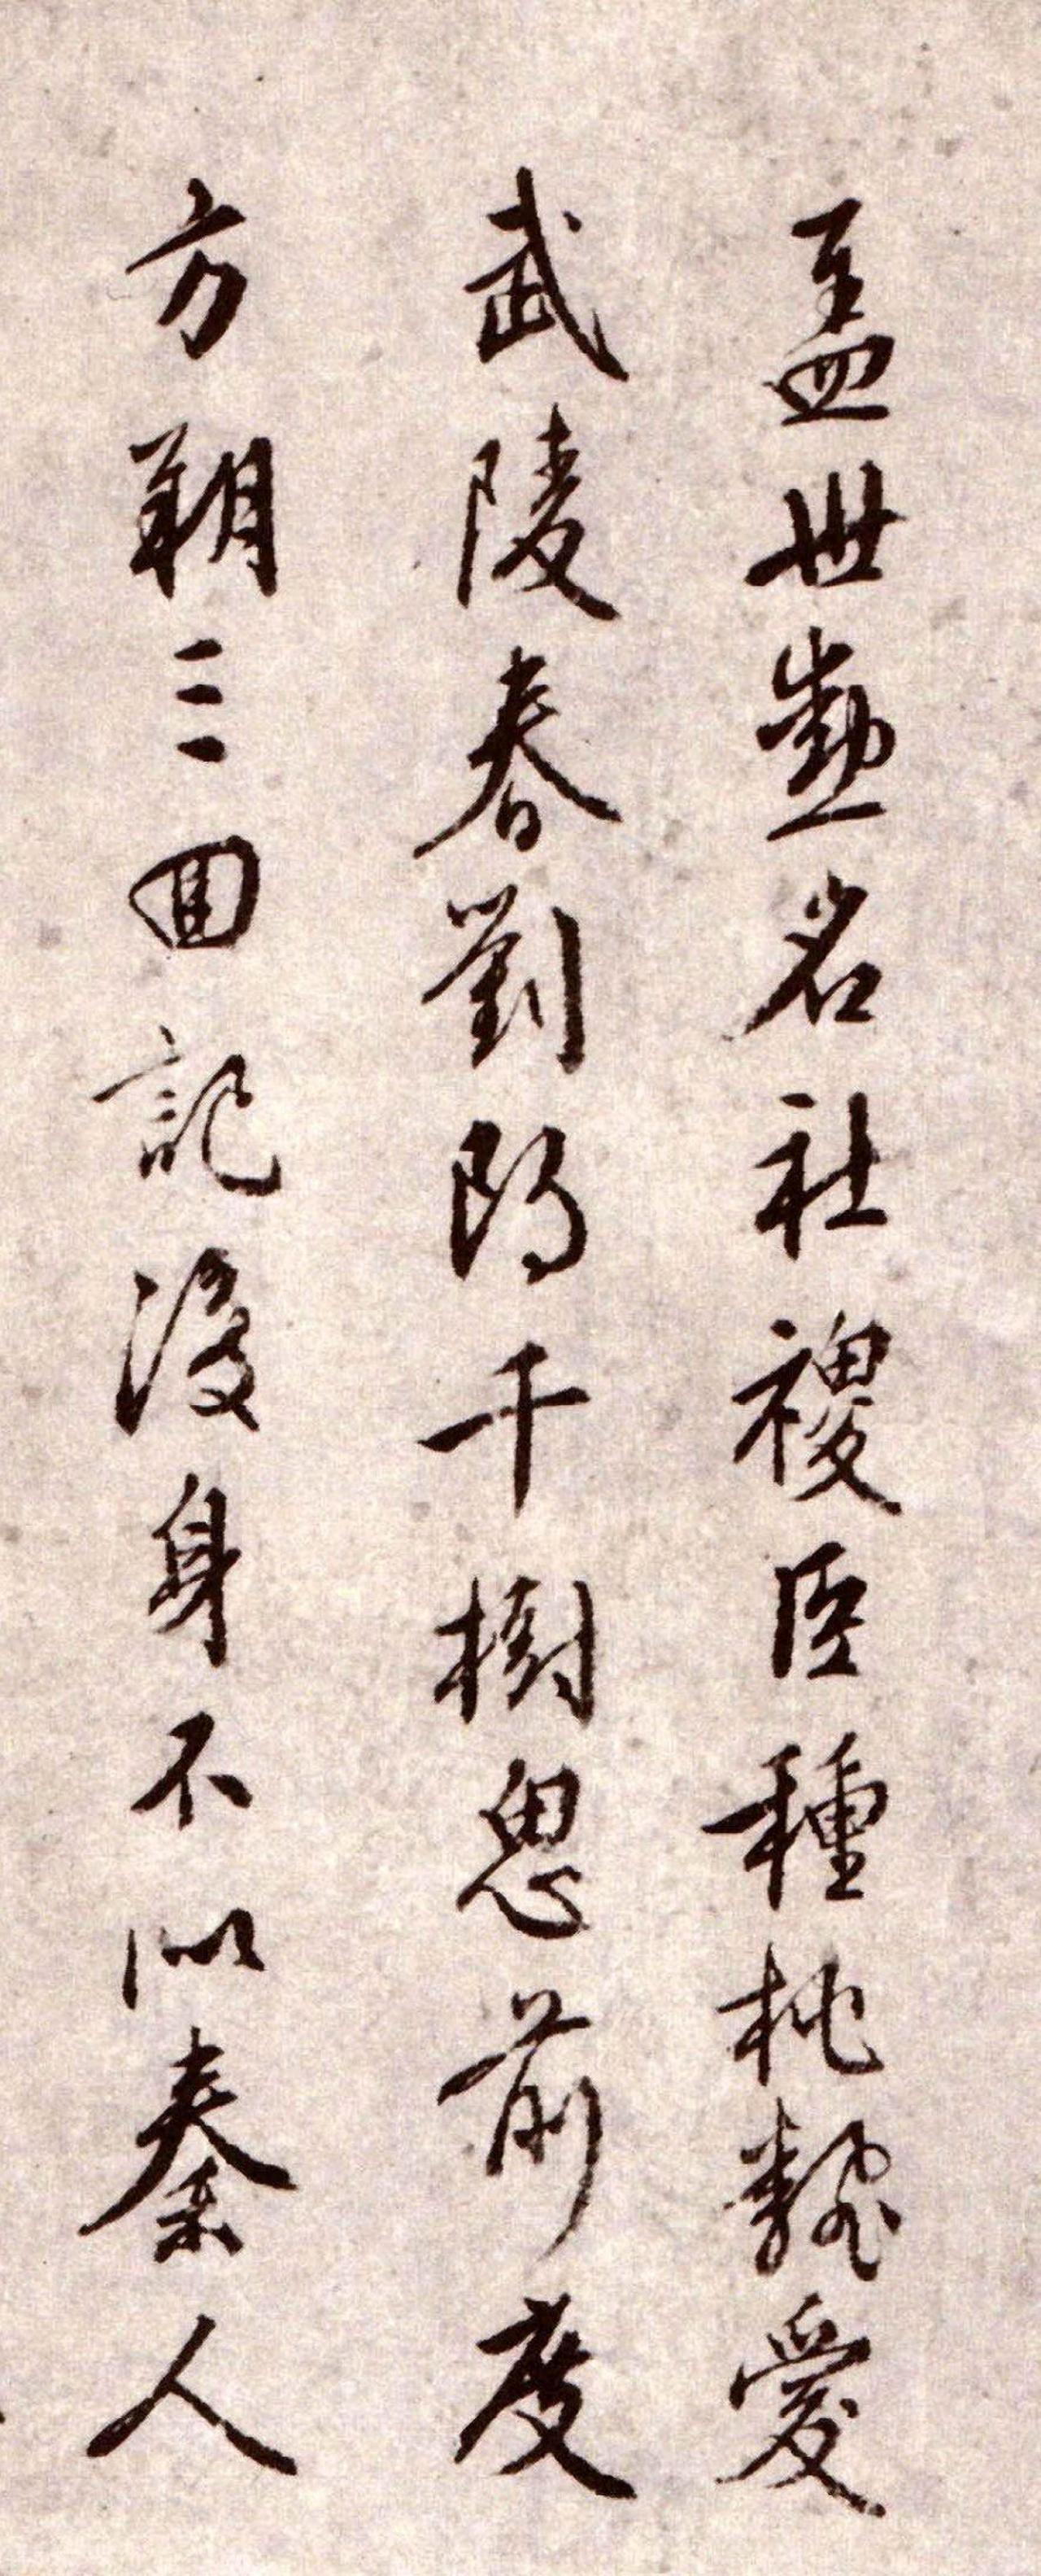 盖世勳名社稷臣種桃勢愛
武陵春劉郎千樹思前度
方朔三回記後身不似秦人